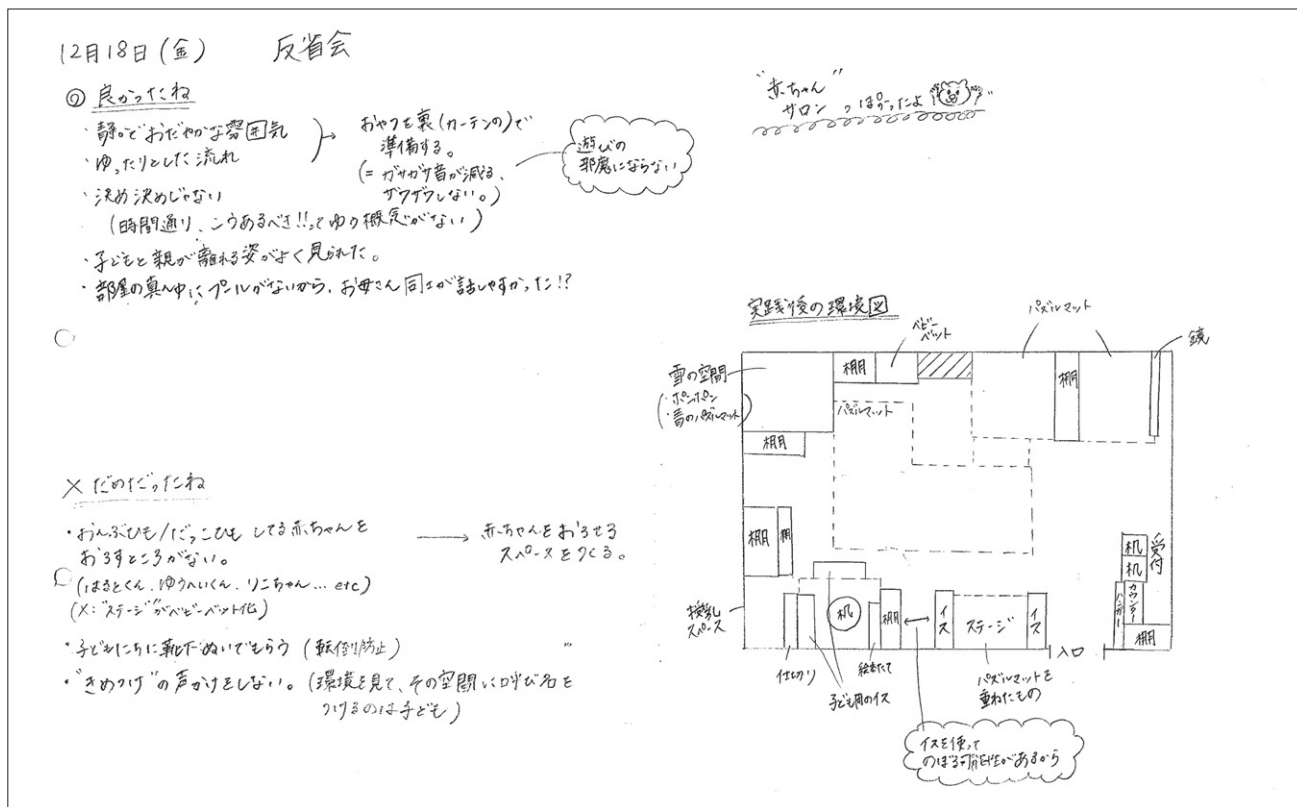 12月18日(金) 反省会
◎ 良かったね
・静かでおだやかな雰囲気
・ゆったりとした流れ
おやつを裏(カーテンの)で
準備する。
(=ガサガサ音が減る、
ザワザワしない。)
遊びの
邪魔にならない
・決め決めじゃない
(時間通り、こうあるべき!!ってゆう概念がない)
・子どもと親が離れる姿がよく見られた。
・部屋の真ん中にプールがないから、お母さん同士が話しやすかった!?
"赤ちゃん"
サロン っぽかったよ
× だめだったね
・おんぶひも/だっこひも してる赤ちゃんを
おろすところがない。
(はるとくん、ゆうへいくん、りこちゃん…etc)
(×:"ステージ"がベビーベット化)
赤ちゃんをおろせる
スペースをつくる。
・子どもたちに靴下ぬいでもらう (転倒防止)
・"きめつけ"の声かけをしない。(環境を見て、その空間に呼び名を
つけるのは子ども)
実践後の環境図
ベビー
ベット
パズルマット
鏡
雪の空間
・ポンポン
・青のパズルマット
棚
棚
パズルマット
棚
棚
棚
机
机
受付
カウンター
ハンガー
棚
授乳
スペース
机
棚
イス
ステージ
イス
入口
仕切り
子ども用のイス
絵本たて
パズルマットを
重ねたもの
イスを使って
のぼる可能性があるから